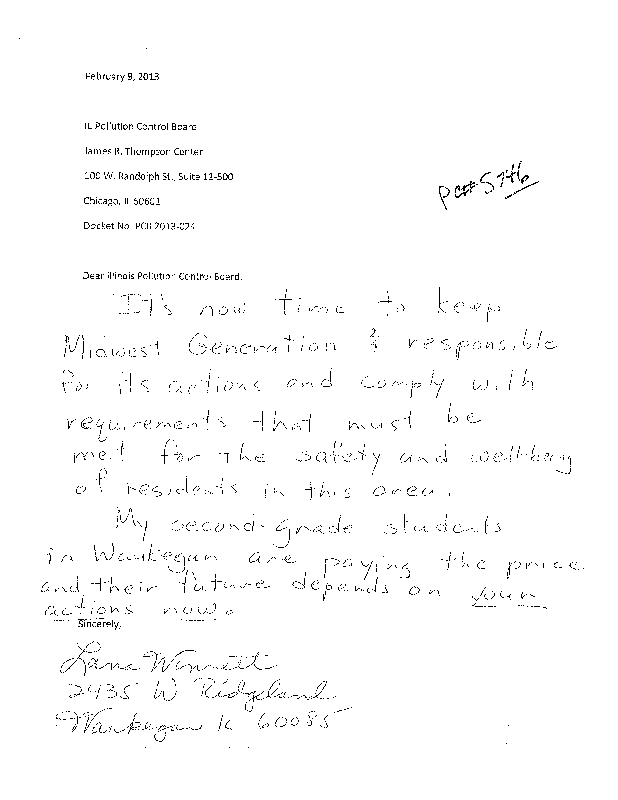 February 9, 2013
IL Pollution Control Board
James R. Thompson Center
PC# 5746
100 W. Randolph St., Suite 11-500
Chicago, IL 60601
Docket No. PCB 2013-024
Dear Illinois Pollution Control Board,
It's now time to keep
Midwest Generation responsible
for its actions and comply with
requirements that must be
met for the safety and well-being
of residents in this area.
My second-grade students
in Waukegan are paying the price
and their future depends on your
actions now.
Sincerely,
Lana Winnett
2435 W Ridgeland
Waukegan IL 60085